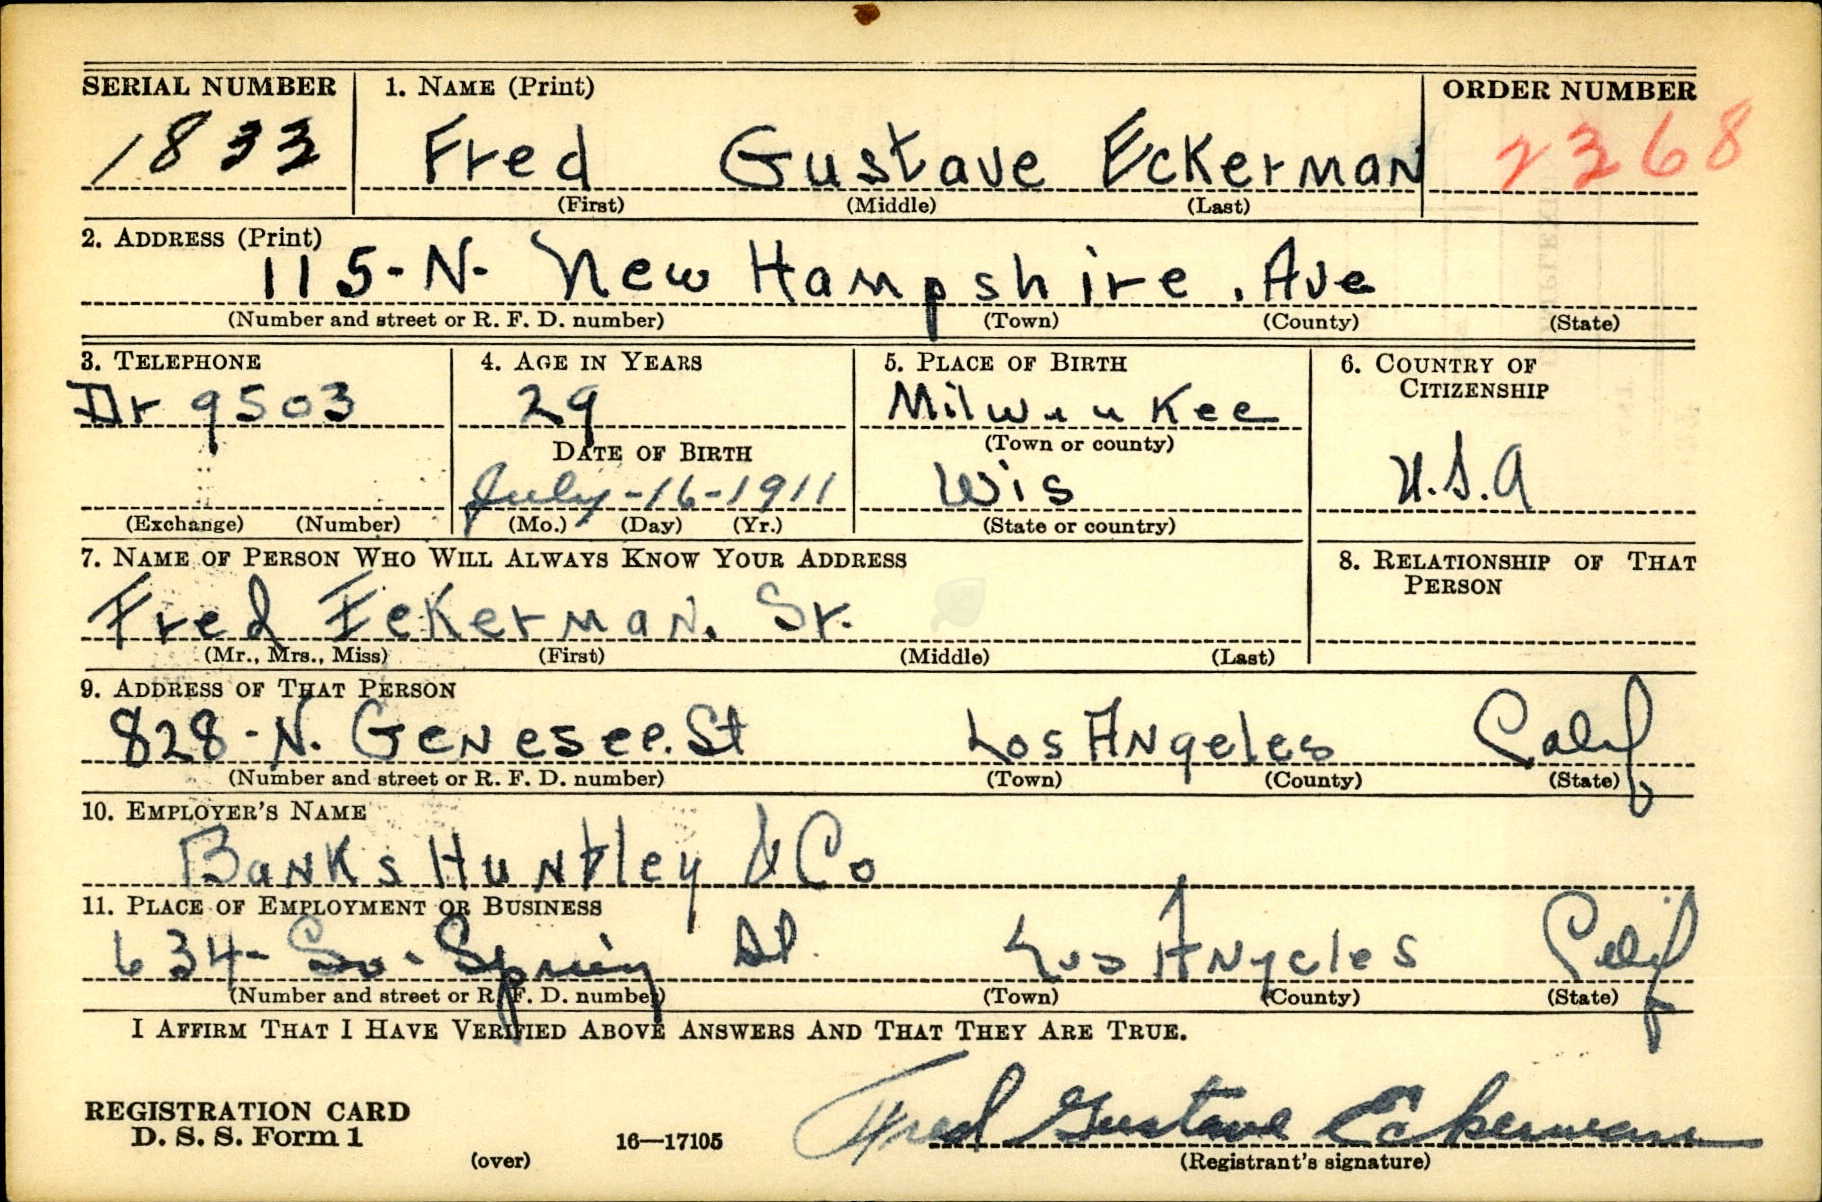 SERIAL NUMBER 1. NAME (Print) ORDER NUMBER
1833 Fred Gustave Eckerman 2368
(First) (Middle) (Last)
2. ADDRESS (Print)
115-N. New Hampshire. Ave
(Number and street or R. F. D. number) (Town) (County) (State)
3. TELEPHONE 4. AGE IN YEARS 5. PLACE OF BIRTH 6. COUNTRY OF CITIZENSHIP
Dr 9503 29 Milwaukee
DATE OF BIRTH (Town or county)
July-16-1911 Wis U.S.A
(Exchange) (Number) (Mo.) (Day) (Yr.) (State or country)
7. NAME OF PERSON WHO WILL ALWAYS KNOW YOUR ADDRESS 8. RELATIONSHIP OF THAT PERSON
Fred Eckerman. Sr.
(Mr., Mrs., Miss) (First) (Middle) (Last)
9. ADDRESS OF THAT PERSON
828-N. Genesee. St Los Angeles Calif
(Number and street or R. F. D. number) (Town) (County) (State)
10. EMPLOYER'S NAME
Banks Huntley & Co
11. PLACE OF EMPLOYMENT OR BUSINESS
634- So. Spring St. Los Angeles Calif
(Number and street or R. F. D. number) (Town) (County) (State)
I AFFIRM THAT I HAVE VERIFIED ABOVE ANSWERS AND THAT THEY ARE TRUE.
REGISTRATION CARD
D. S. S. Form 1 16—17105 Fred Gustave Eckerman
(over) (Registrant's signature)